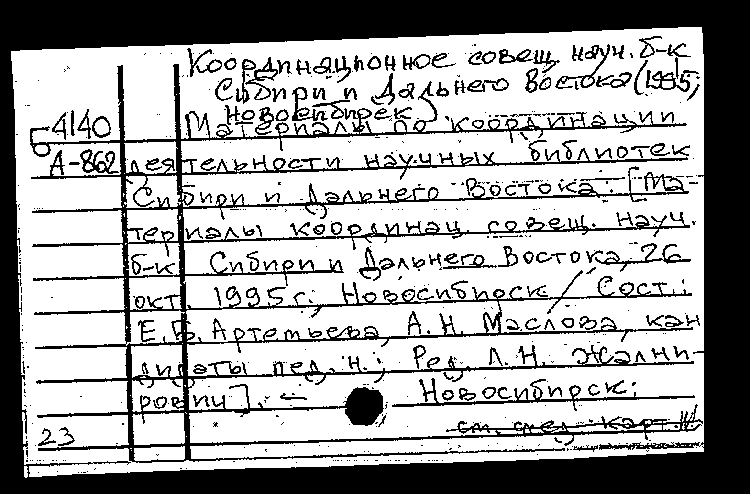 Координационное совещ. науч. б-к
Сибири и Дальнего Востока (1995;
Новосибирск)
Б 4140 Материалы по координации
А-862 деятельности научных библиотек
Сибири и Дальнего Востока: [Ма-
териалы координац. совещ. науч.
б-к Сибири и Дальнего Востока, 26
окт. 1995 г., Новосибирск / Сост.:
Е.Б. Артемьева, А.Н. Маслова, кан
дидаты пед. н.; Ред. Л.Н. Жални-
ровпи]. –
Новосибирск:
23 см. след. карт.